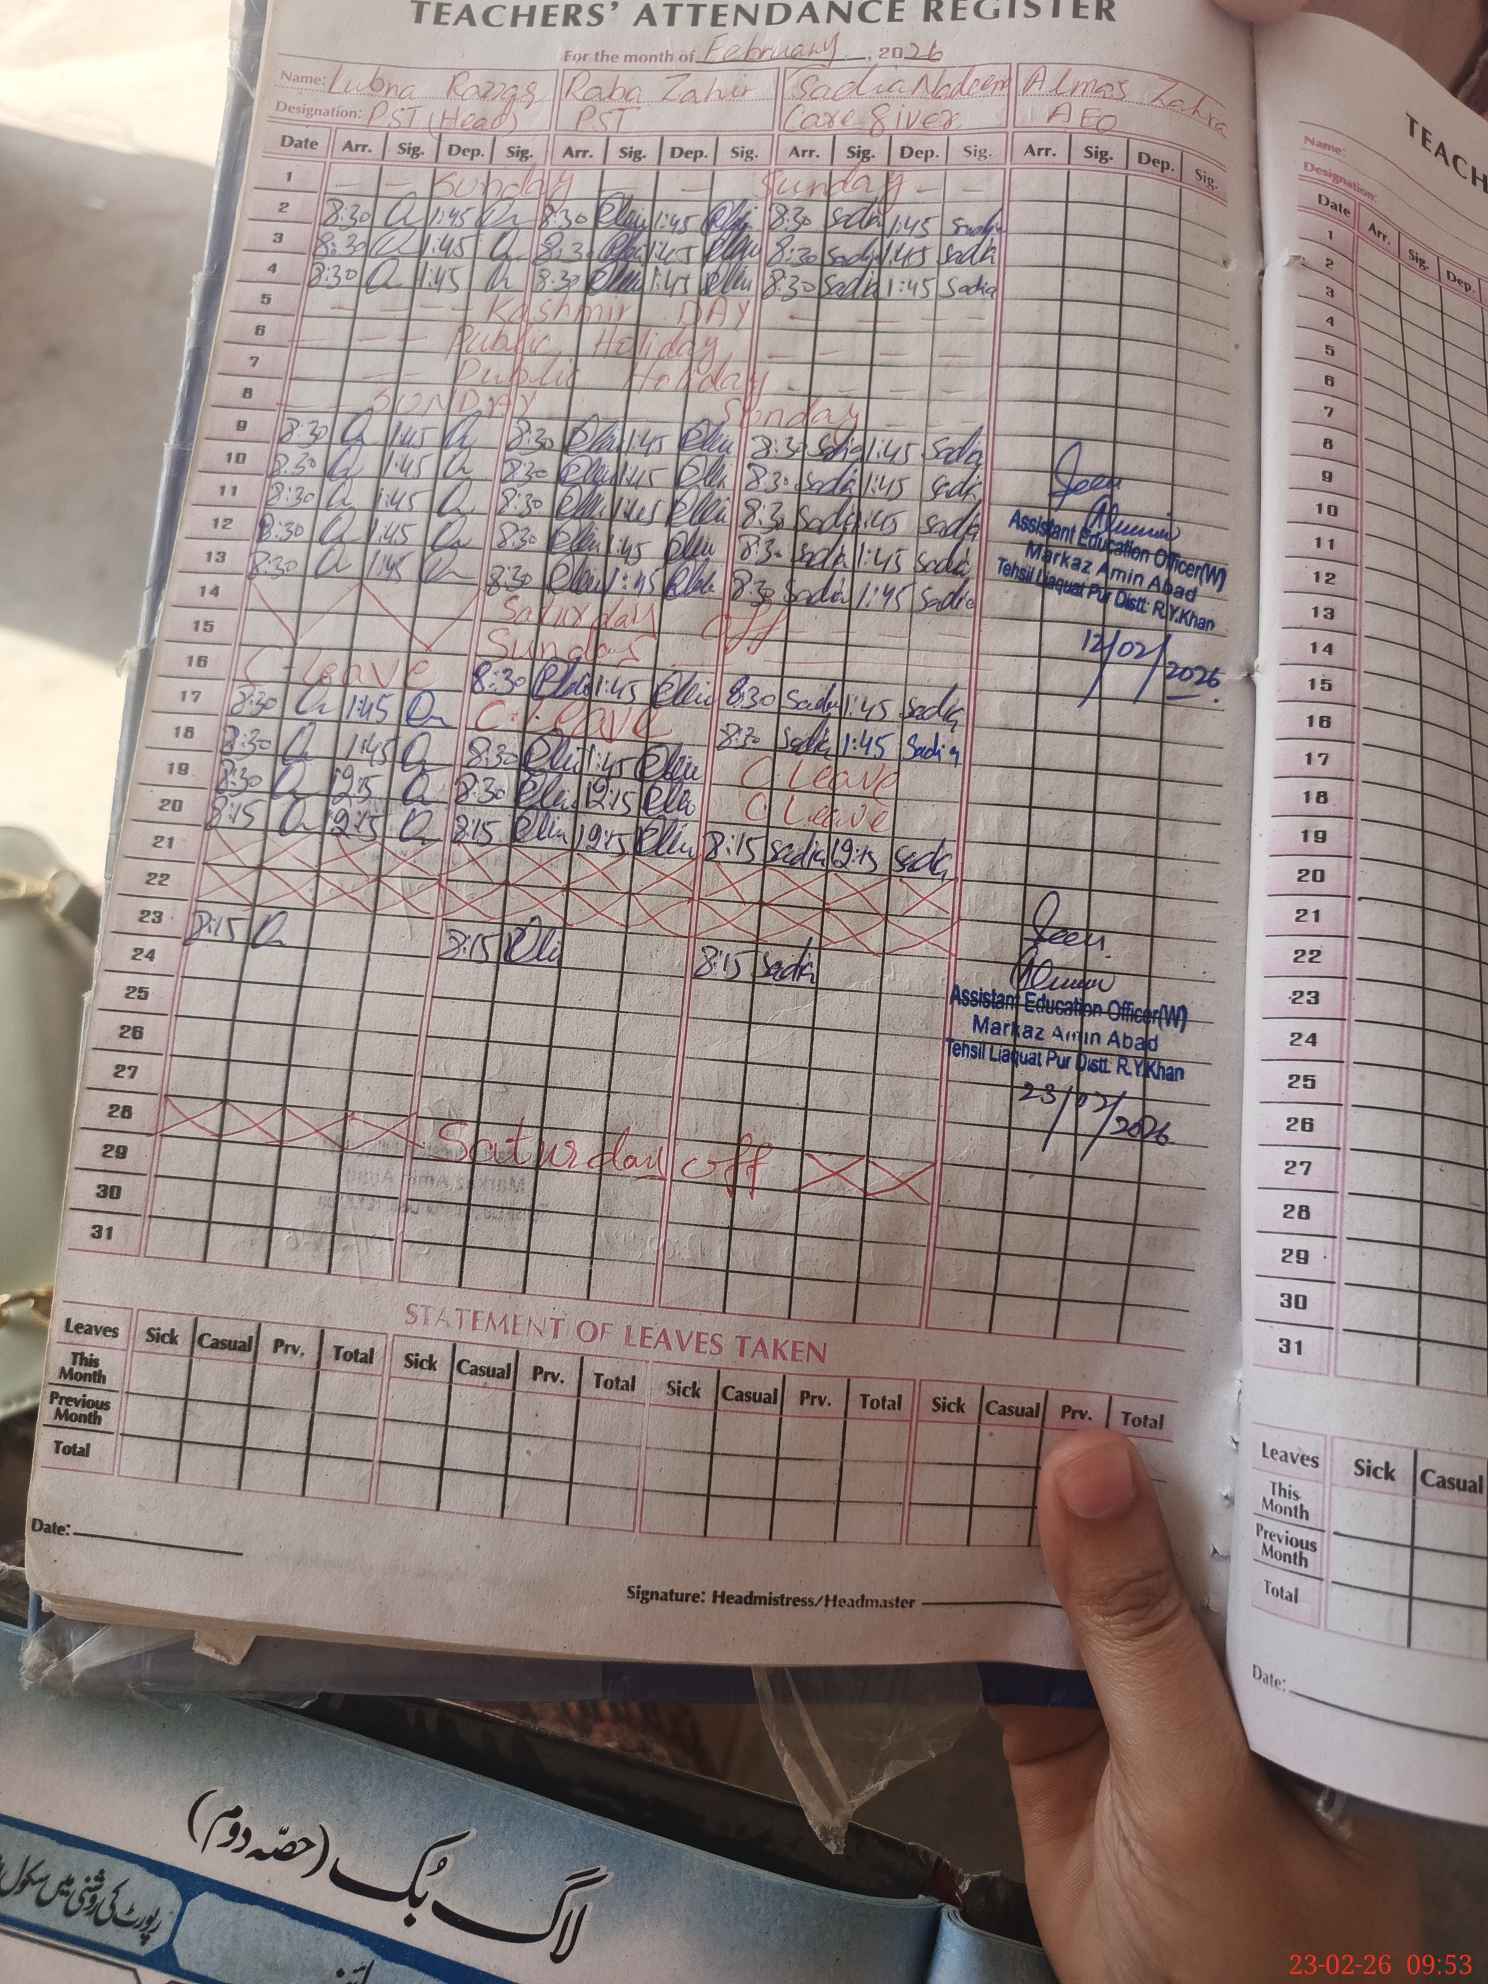 TEACHERS' ATTENDANCE REGISTER
For the month of February, 2026
Name: Lubna Razzaq Raba Zahir Sadia Nadeem Almas Zahra
Designation: PST (Head) PST Care Giver AEO
Date Arr. Sig. Dep. Sig. Arr. Sig. Dep. Sig. Arr. Sig. Dep. Sig. Arr. Sig. Dep. Sig.
1 Sunday Sunday
2 8:30 1:45 8:30 1:45 8:30 Sadia 1:45 Sadia
3 8:30 1:45 8:30 1:45 8:30 Sadia 1:45 Sadia
4 8:30 1:45 8:30 1:45 8:30 Sadia 1:45 Sadia
5 Kashmir DAY
6 Public Holiday
7 Public Holiday
8 SUNDAY Sunday
9 8:30 1:45 8:30 1:45 8:30 Sadia 1:45 Sadia
10 8:30 1:45 8:30 1:45 8:30 Sadia 1:45 Sadia
11 8:30 1:45 8:30 1:45 8:30 Sadia 1:45 Sadia
12 8:30 1:45 8:30 1:45 8:30 Sadia 1:45 Sadia
13 8:30 1:45 8:30 1:45 8:30 Sadia 1:45 Sadia
14 Saturday off
15 Sunday
16 C-leave 8:30 1:45 8:30 Sadia 1:45 Sadia
17 8:30 1:45 C. Leave 8:30 Sadia 1:45 Sadia
18 8:30 1:45 8:30 1:45 C Leave
19 8:30 12:15 8:30 12:15 C Leave
20 8:15 12:15 8:15 12:15 8:15 Sadia 12:15 Sadia
21
22
23 8:15 8:15 8:15 Sadia
24
25
26
27
28 Saturday off
29
30
31
Seen
Assistant Education Officer(W)
Markaz Amin Abad
Tehsil Liaquat Pur Distt: R.Y.Khan
12/02/2026
Seen
Assistant Education Officer(W)
Markaz Amin Abad
Tehsil Liaquat Pur Distt: R.Y.Khan
23/02/2026
STATEMENT OF LEAVES TAKEN
Leaves Sick Casual Prv. Total Sick Casual Prv. Total Sick Casual Prv. Total Sick Casual Prv. Total
This Month
Previous Month
Total
Date:
Signature: Headmistress/Headmaster
TEACH
Name:
Designation:
Date Arr. Sig. Dep.
1
2
3
4
5
6
7
8
9
10
11
12
13
14
15
16
17
18
19
20
21
22
23
24
25
26
27
28
29
30
31
Leaves Sick Casual
This Month
Previous Month
Total
Date:
لاگ بُک (حصّہ دوم)
رپورٹ کی روشنی میں سکول
23-02-26 09:53